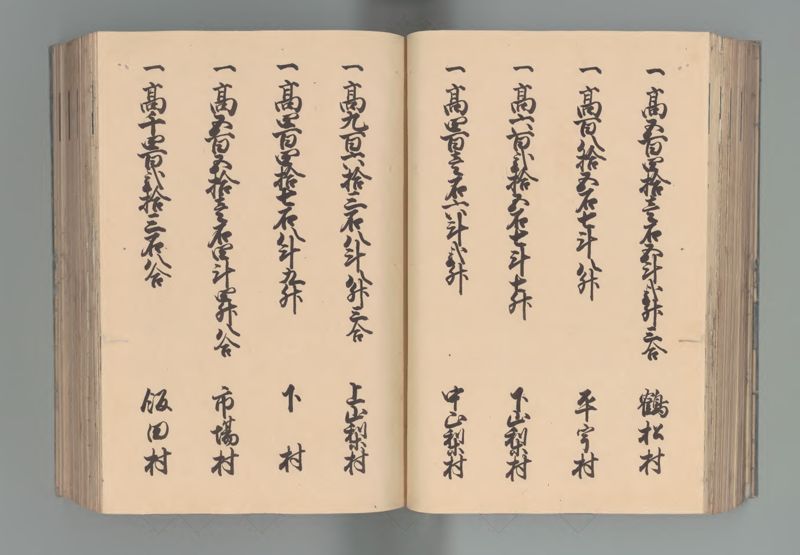 一高五百四拾壱石五斗弐升三合 鶴松村
一高百八拾五石七斗八升 平宇村
一高六百弐拾五石七斗七升 下山梨村
一高四百壱石六斗弐升 中山梨村
一高九百六拾三石八斗八升三合 上山梨村
一高四百四拾七石八斗九升 下村
一高五百五拾壱石四斗四升八合 市場村
一高千四百弐拾三石八合 飯田村